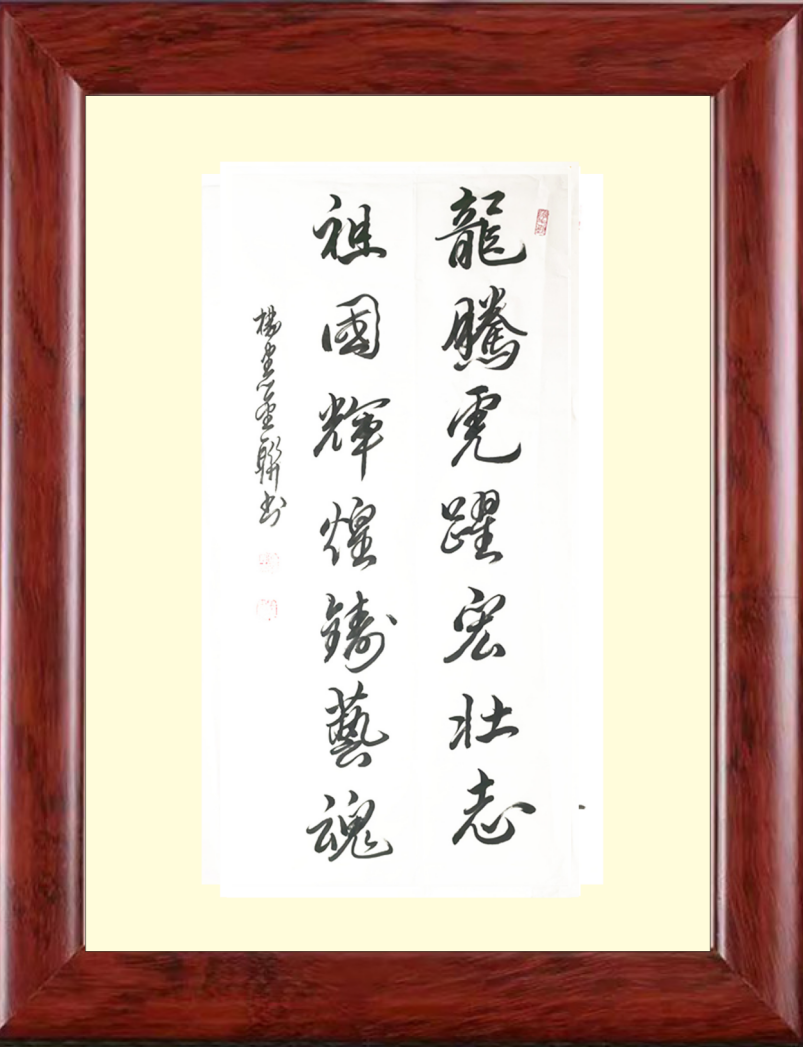 龍騰虎躍宏壯志
祖國輝煌鑄藝魂
楊書聯書